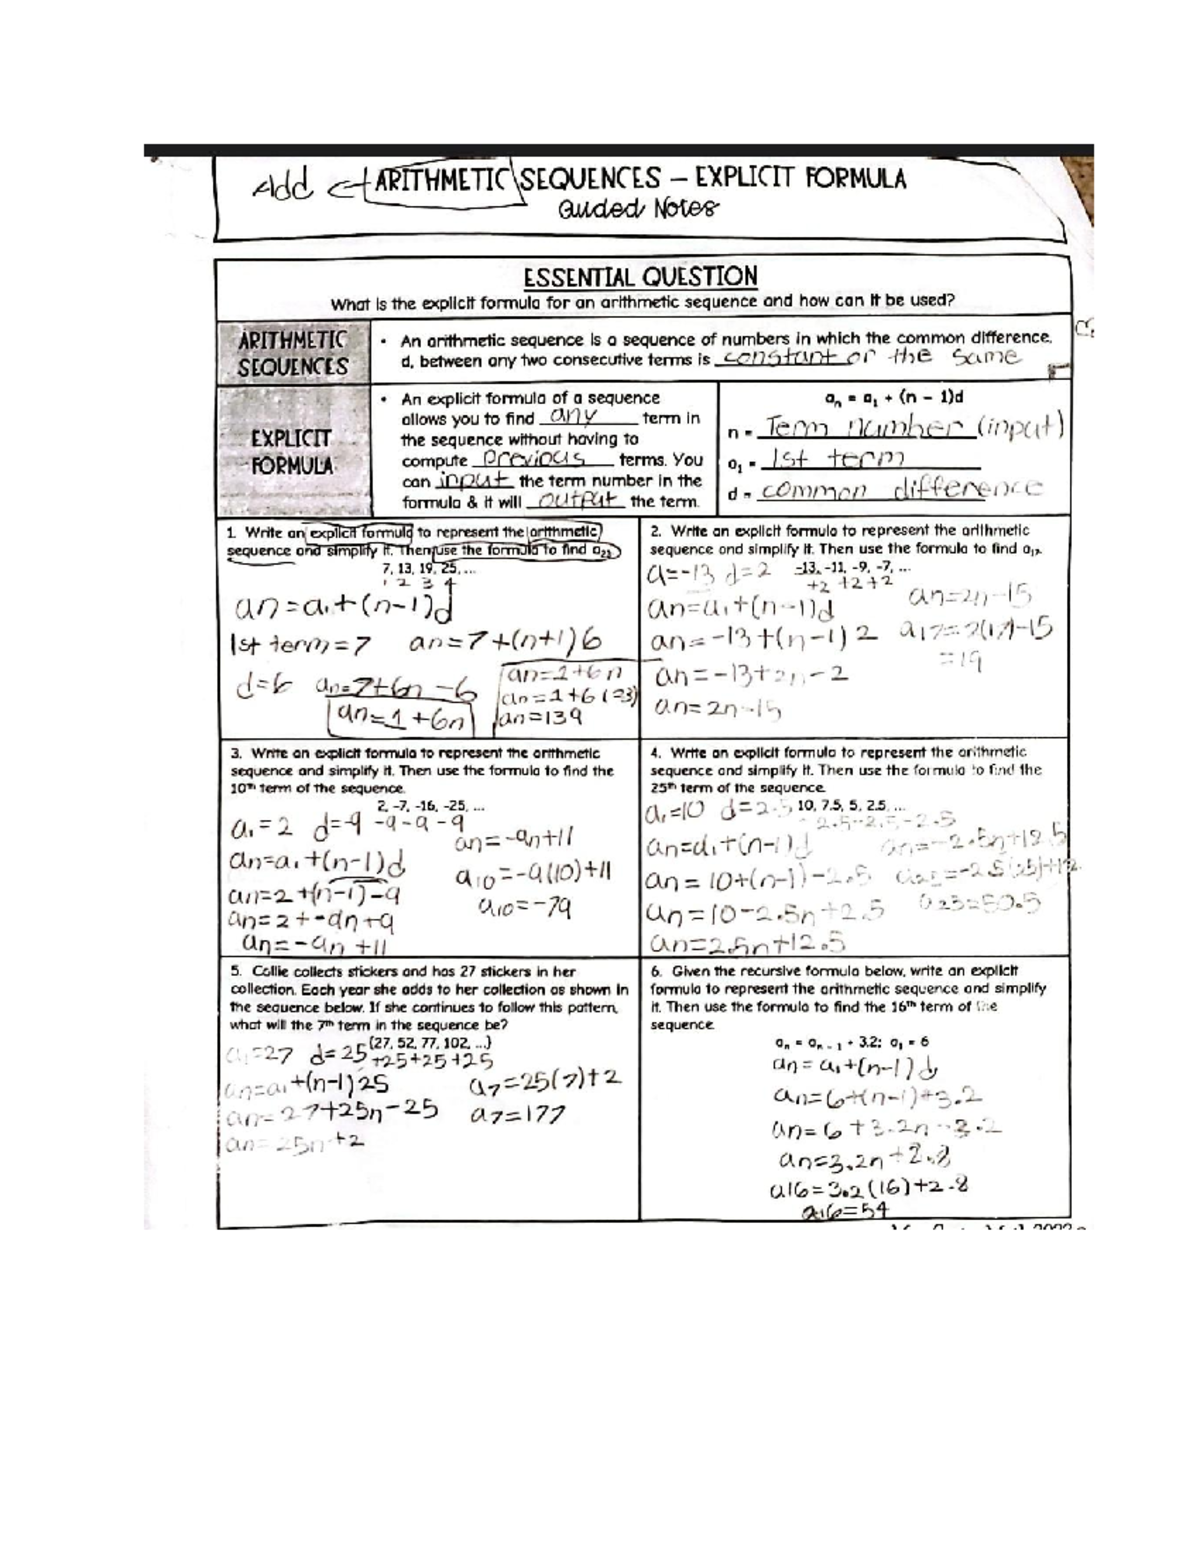 Add ARITHMETIC SEQUENCES – EXPLICIT FORMULA
Guded Notes
ESSENTIAL QUESTION
What is the explicit formula for an arithmetic sequence and how can it be used?
ARITHMETIC
SEQUENCES
• An arithmetic sequence is a sequence of numbers in which the common difference,
d, between any two consecutive terms is constant or the same
EXPLICIT
FORMULA
• An explicit formula of a sequence
allows you to find any term in
the sequence without having to
compute previous terms. You
can input the term number in the
formula & it will output the term.
aₙ = a₁ + (n – 1)d
n = Term number (input)
a₁ = 1st term
d = common difference
1. Write an explicit formula to represent the arithmetic
sequence and simplify it. Then use the formula to find a₂₃
7, 13, 19, 25, ...
1 2 3 4
an=a₁+(n-1)d
1st term=7 an=7+(n+1)6
d=6 an=7+6n-6
an=1+6n
an=1+6n
an=1+6(23)
an=139
2. Write an explicit formula to represent the arithmetic
sequence and simplify it. Then use the formula to find a₁₇.
-13, -11, -9, -7, ...
a=-13 d=2 +2 +2+2
an=a₁+(n-1)d
an=-13+(n-1)2
an=-13+2n-2
an=2n-15
an=2n-15
a17=2(17)-15
=19
3. Write an explicit formula to represent the arithmetic
sequence and simplify it. Then use the formula to find the
10ᵗʰ term of the sequence.
2, -7, -16, -25, ...
a₁=2 d=-9 -9-9-9
an=a₁+(n-1)d
an=2+(n-1)-9
an=2+-9n+9
an=-9n+11
an=-9n+11
a10=-9(10)+11
a10=-79
4. Write an explicit formula to represent the arithmetic
sequence and simplify it. Then use the formula to find the
25ᵗʰ term of the sequence.
a₁=10 d=2.5 10, 7.5, 5, 2.5, ...
-2.5-2.5-2.5
an=a₁+(n-1)d
an=10+(n-1)-2.5
an=10-2.5n+2.5
an=2.5n+12.5
an=-2.5n+12.5
a25=-2.5(25)+12.
=50.5
5. Collie collects stickers and has 27 stickers in her
collection. Each year she adds to her collection as shown in
the sequence below. If she continues to follow this pattern,
what will the 7ᵗʰ term in the sequence be?
{27, 52, 77, 102, ...}
a₁=27 d=25 +25+25+25
an=a₁+(n-1)25
an=27+25n-25
an=25n+2
a7=25(7)+2
a7=177
6. Given the recursive formula below, write an explicit
formula to represent the arithmetic sequence and simplify
it. Then use the formula to find the 16ᵗʰ term of the
sequence.
aₙ = aₙ₋₁ + 3.2; a₁ = 6
an=a₁+(n-1)d
an=6+(n-1)+3.2
an=6+3.2n-3.2
an=3.2n+2.8
a16=3.2(16)+2.8
a16=54